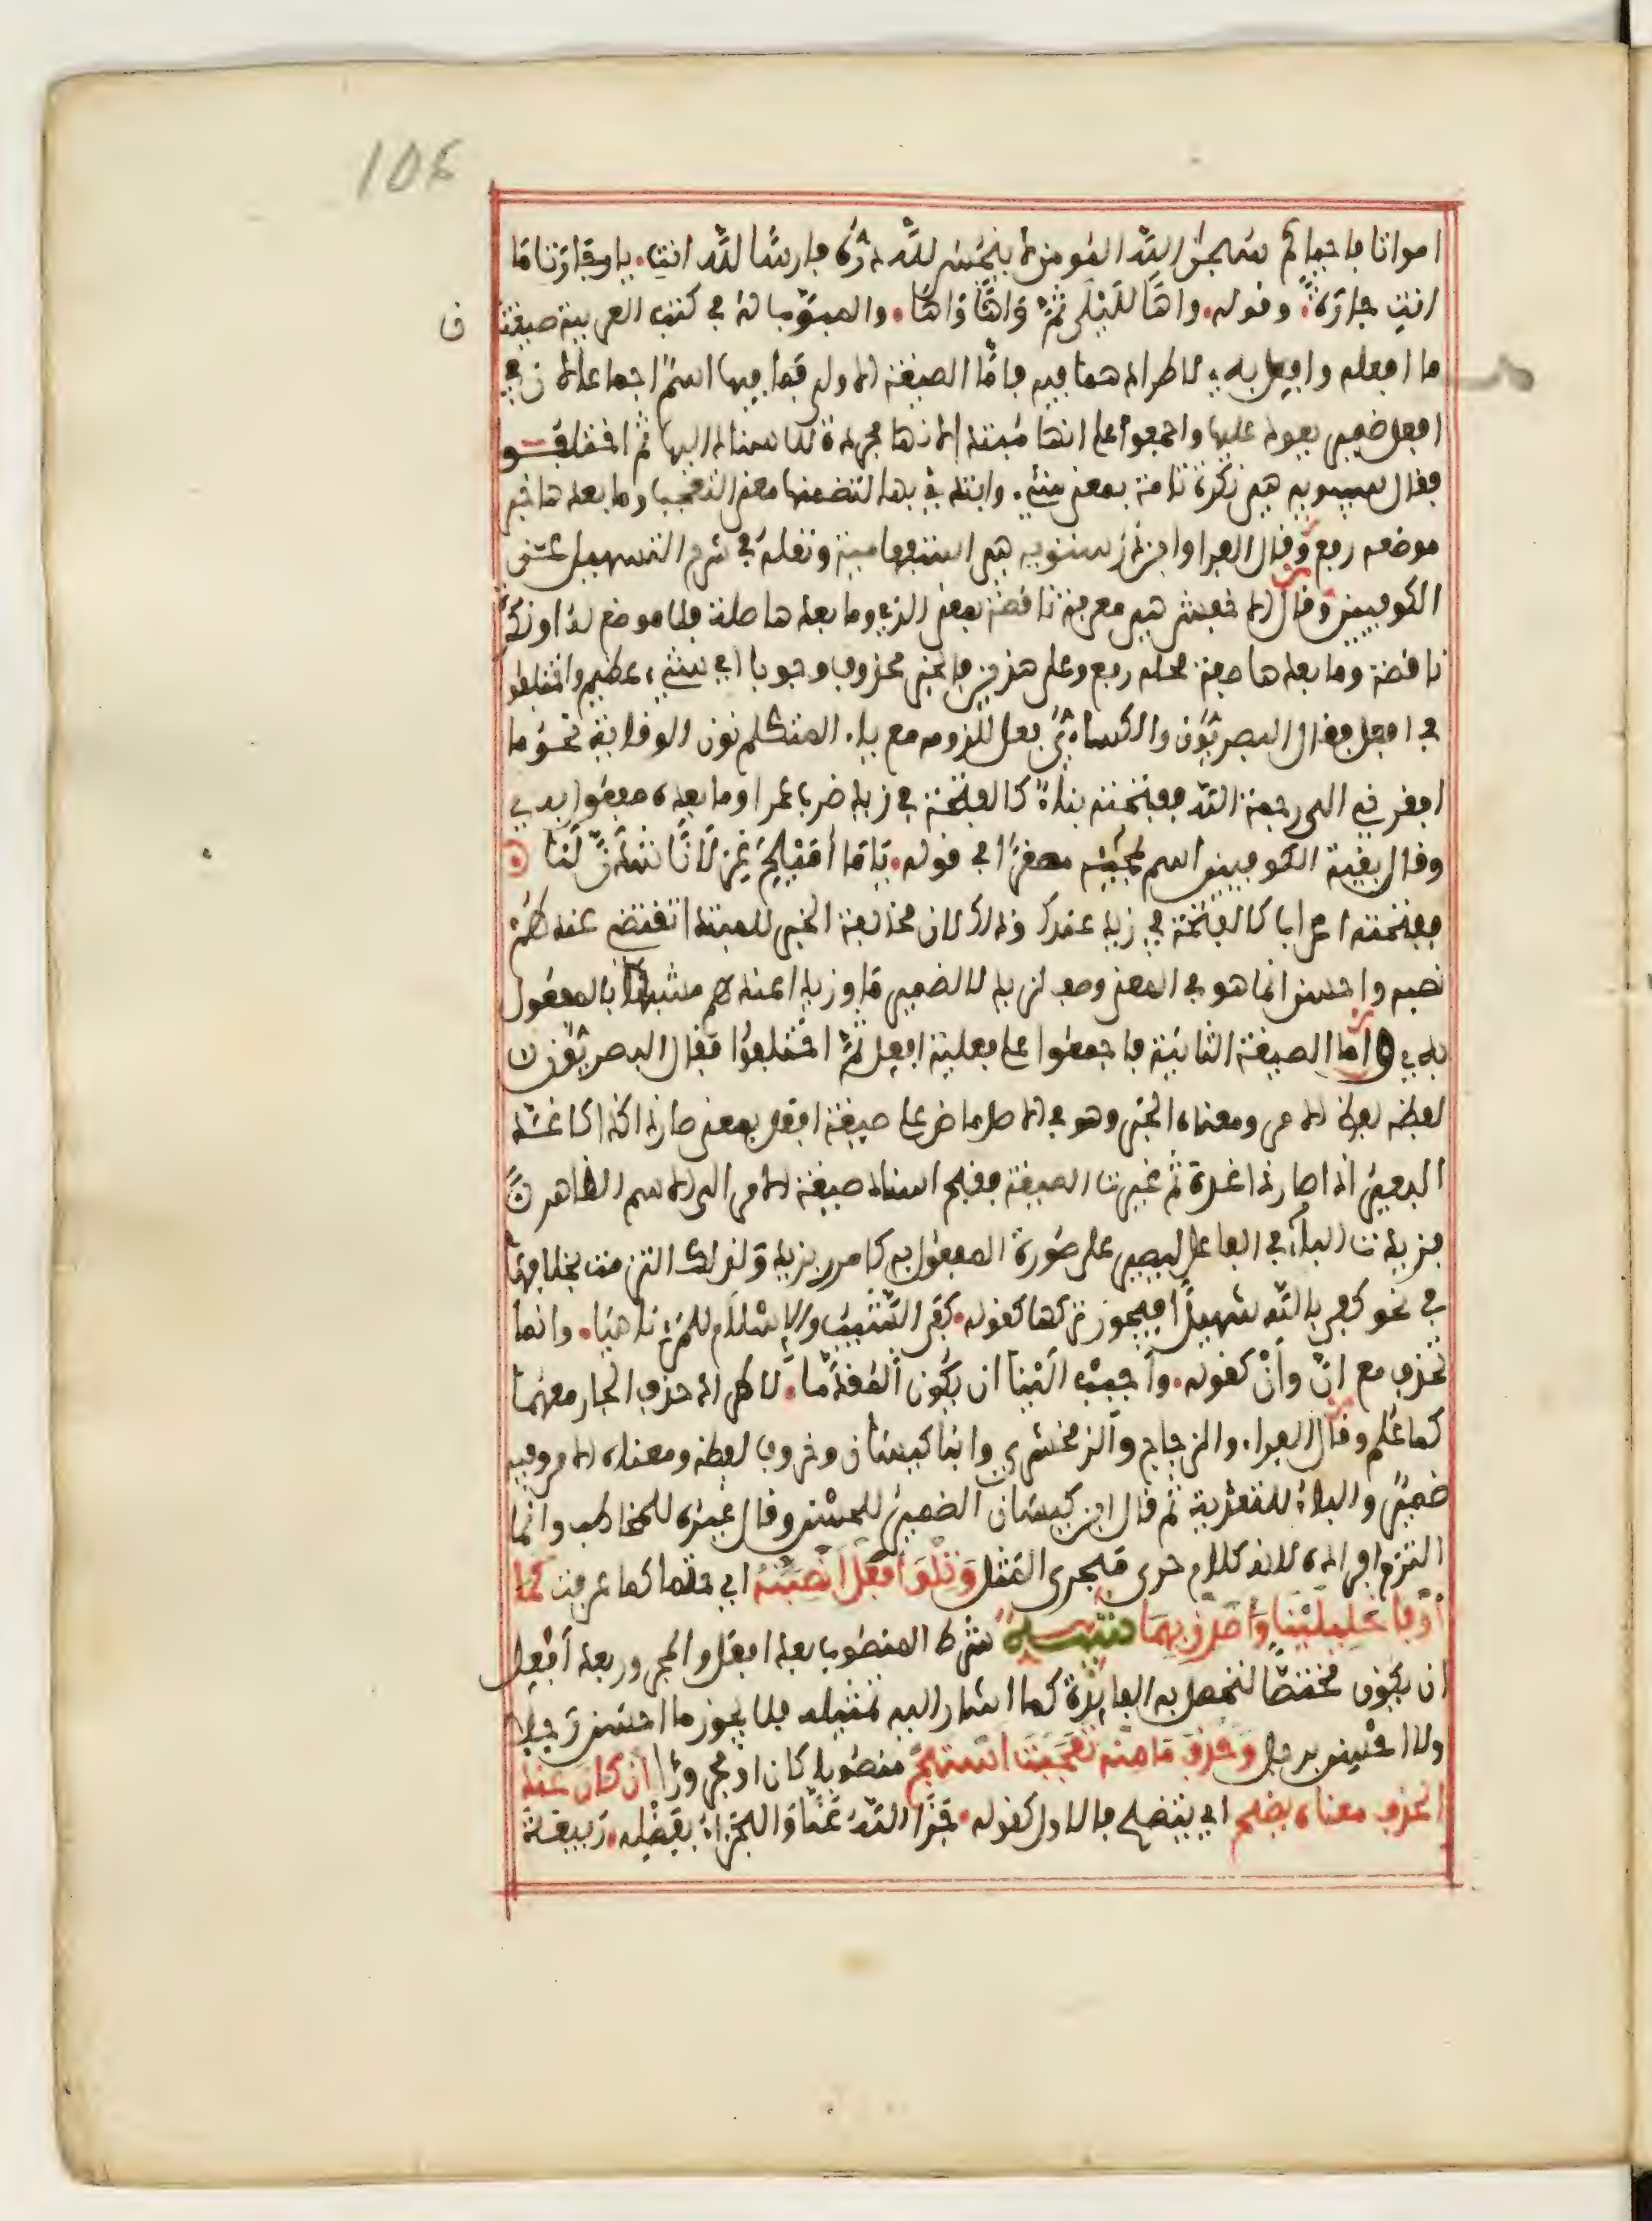 106
امواتا فاحياكم سبحن الله المومن لا ينجس لله دره فارسا لله انت. يا جارتا ما
انت جارة؛ وقوله. واها لليلى ثم واها واها. والمبوب له في كتب العربية صيغتا
ن
ما افعله وافعل به لاطرادهما فيه فاما الصيغة الاولى فما فيها اسم اجماعا لان في
افعل ضمير يعود عليها واجمعوا على انها مبتدا لانها مجردة للاسناد اليها ثم اختلفوا
فقال سيبويه هي نكرة تامة بمعنى شيء. وابتدئ بها لتضمنها معنى التعجب وما بعدها خبر
موضعه رفع وقال الفرا وابن درستويه هي استفهامية ونقله في شرح التسهيل عن
الكوفيين وقال الاخفش هي معرفة ناقصة بمعنى الذي وما بعدها صلة فلا موضع له او نكرة
ناقصة وما بعدها صفة محله رفع وعلى هذين فالخبر محذوف وجوبا اي شيء عظيم واختلفوا
في افعل فقال البصريون والكسائي فعل للزومه مع ياء المتكلم نون الوقاية نحو ما
افقرني الى رحمة الله ففتحته بناء كالفتحة في زيد ضرب عمرا وما بعده مفعول به
وقال بقية الكوفيين اسم لمجيئه مصغرا في قوله. ياما أميلح غزلانا شدن لنا
ففتحته اعرابا كالفتحة في زيد عندك وذلك لان مخالفة الخبر للمبتدا تقتضي عندهم
نصبه واحسن انما هو في المعنى وصف لزيد لا لضمير ما وزيد عندهم مشبها بالمفعول
به واما الصيغة الثانية فاجمعوا على فعلية افعل ثم اختلفوا فقال البصريون
لفظه لفظ الامر ومعناه الخبر وهو في الاصل ماض على صيغة افعل بمعنى صار ذا كذا كاغد
البعير اذا صار ذا غدة ثم غيرت الصيغة فقبح اسناد صيغة الامر الى الاسم الظاهر
فزيدت الباء في الفاعل ليصير على صورة المفعول به كامرر بزيد ولذلك التزمت بخلافها
في نحو كفى بالله شهيدا فيجوز تركها كقوله. كفى الشيب والاسلام للمرء ناهيا. وانما
تحذف مع انّ وأن كقوله. وأحبب الينا ان يكون المقدما. لاطراد حذف الجار معهما
كما علم وقال الفراء والزجاج والزمخشري وابنا كيسان وخروف لفظه ومعناه الامر وفيه
ضمير والباء للتعدية ثم قال ابن كيسان الضمير للحسن وقال غيره للمخاطب وانما
التزم افراده لانه كلام جرى مجرى المثل وتلو أفعل انصبنه اي حتما كما عرفت كما
أوفى خليلينا وأصدق بهما تنبيه شرط المنصوب بعد افعل والمجرور بعد أفعل
ان يكون مختصا لتحصل به الفائدة كما اشار اليه تمثيله فلا يجوز ما احسن رجلا
ولا احسن برجل وحذف ما منه تعجبت استبح منصوبا كان او مجرورا ان كان عند
الحذف معناه يضح اي يتضح فالاول كقوله. جزا الله عنا والجزاء بفضله. ربيعة